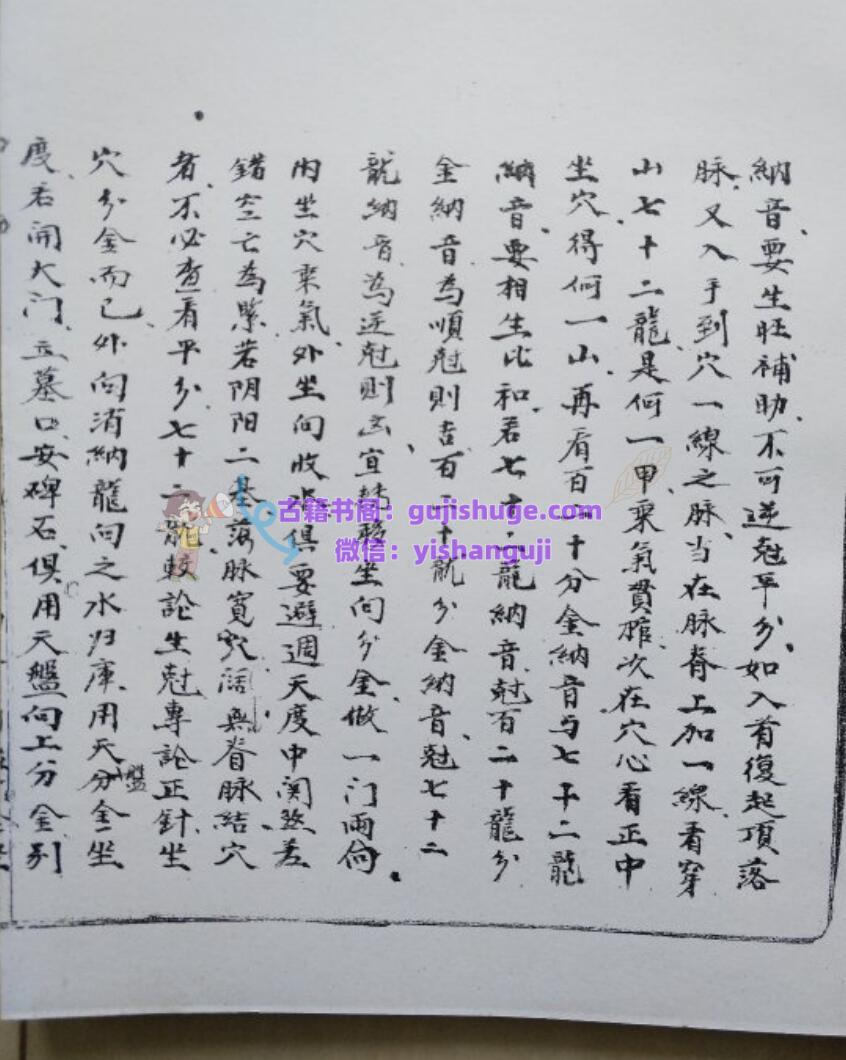 納音要生旺補助、不可逆尅平分、如入首復起項落
脉、又入手到穴一線之脉、当在脉脊上加一線、看穿
山七十二龍是何一甲、乘氣貫、次在穴心看正中
坐穴、得何一山、再看百二十分金納音与七十二龍
納音、要相生比和、若七十二龍納音尅百二十龍分
金納音為順尅則吉、百二十龍分金納音尅七十二
龍納音為逆尅則凶、宜轉移坐向分金、做一门兩向
内坐穴乘氣、外坐向收水俱要避週天度中関煞差
錯空亡為緊、若阴阳二基落脉寬穴濶無脊脉結穴
者、不必查看平分七十二龍較論生尅、專論正針坐
穴分金而已、外向消納龍向之水归庫、用天盤分金坐
度、若開大门、立墓口、安碑石、俱用天盤向上分金、别
古籍书阁：gujishuge.com
微信：yishanguji